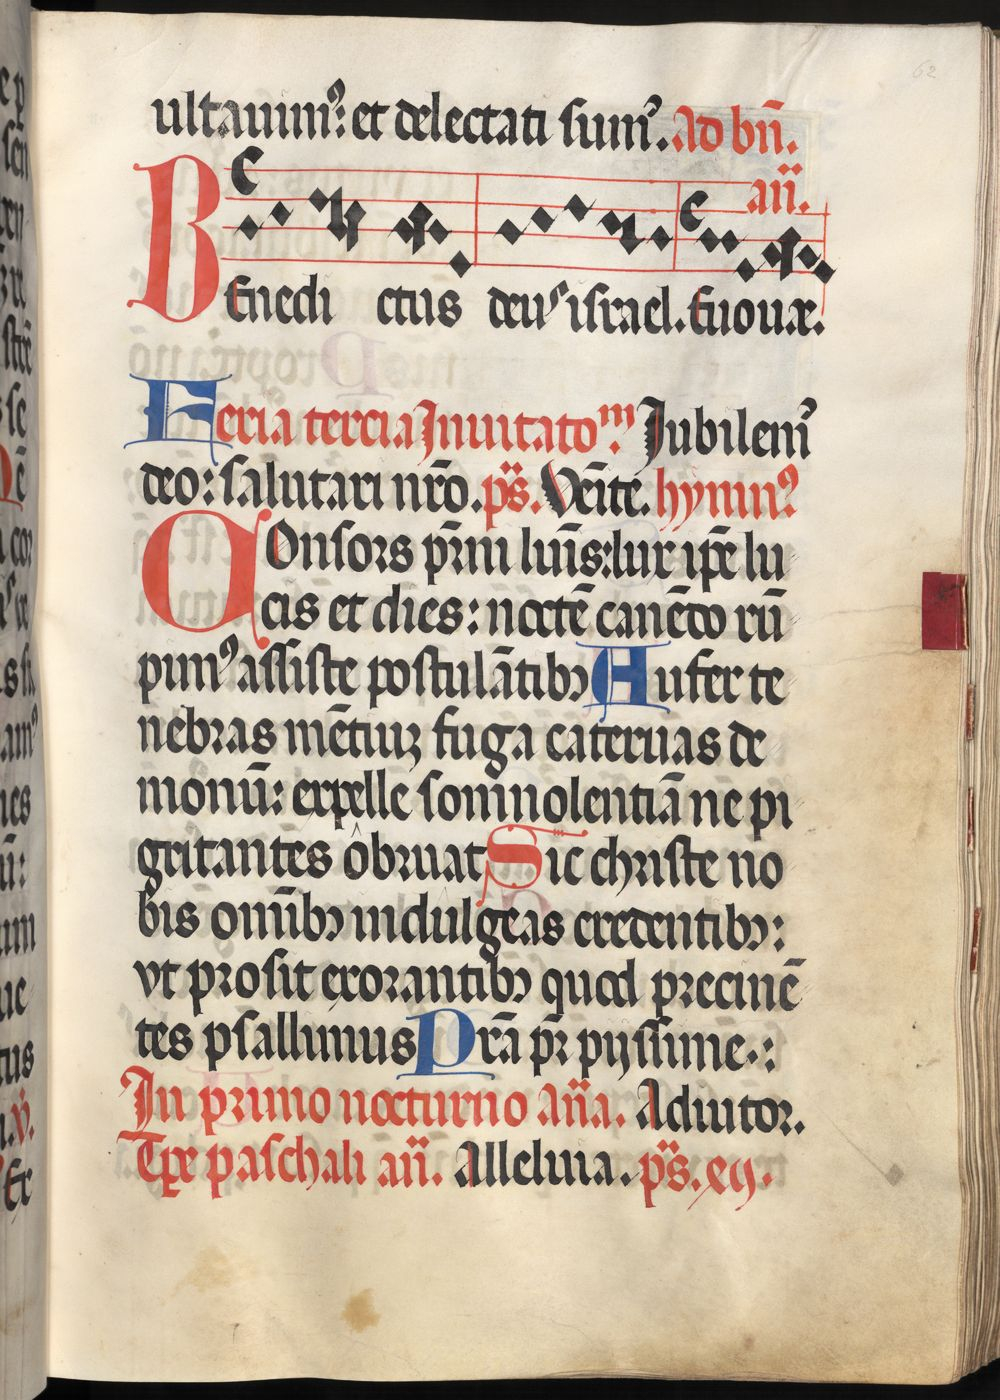 62
ultauimꝰ: et delectati sumꝰ. Ad bn̄.
an̄.
BEnedi ctus deus israel. Euouae.
Feria tercia Inuitatoᵐ: Jubilemꝰ
deo: salutari nr̄o. ps̄. Ven̄ite. hymnꝰ
COnsors pr̄ni lum̄s: lux ip̄e lu
cis et dies: noctē canēdo rū
pimꝰ assiste postulātibꝫ Aufer te
nebras mētiuꝫ fuga cateruas de
monū: expelle somnolentiā ne pi
gritantes obruat Sic christe no
bis om̄ibꝫ indulgeas credentibꝫ:
vt prosit exorantibꝫ quod precinē
tes psallimus Pr̄ā pr̄ pijssime.:
In primo nocturno an̄a. Adiutor.
Tp̄e paschali an̄. Alleluia. ps̄. xxj.